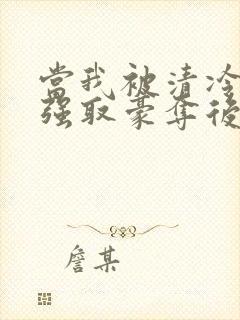 當我被清冷
強取豪奪後
詹某